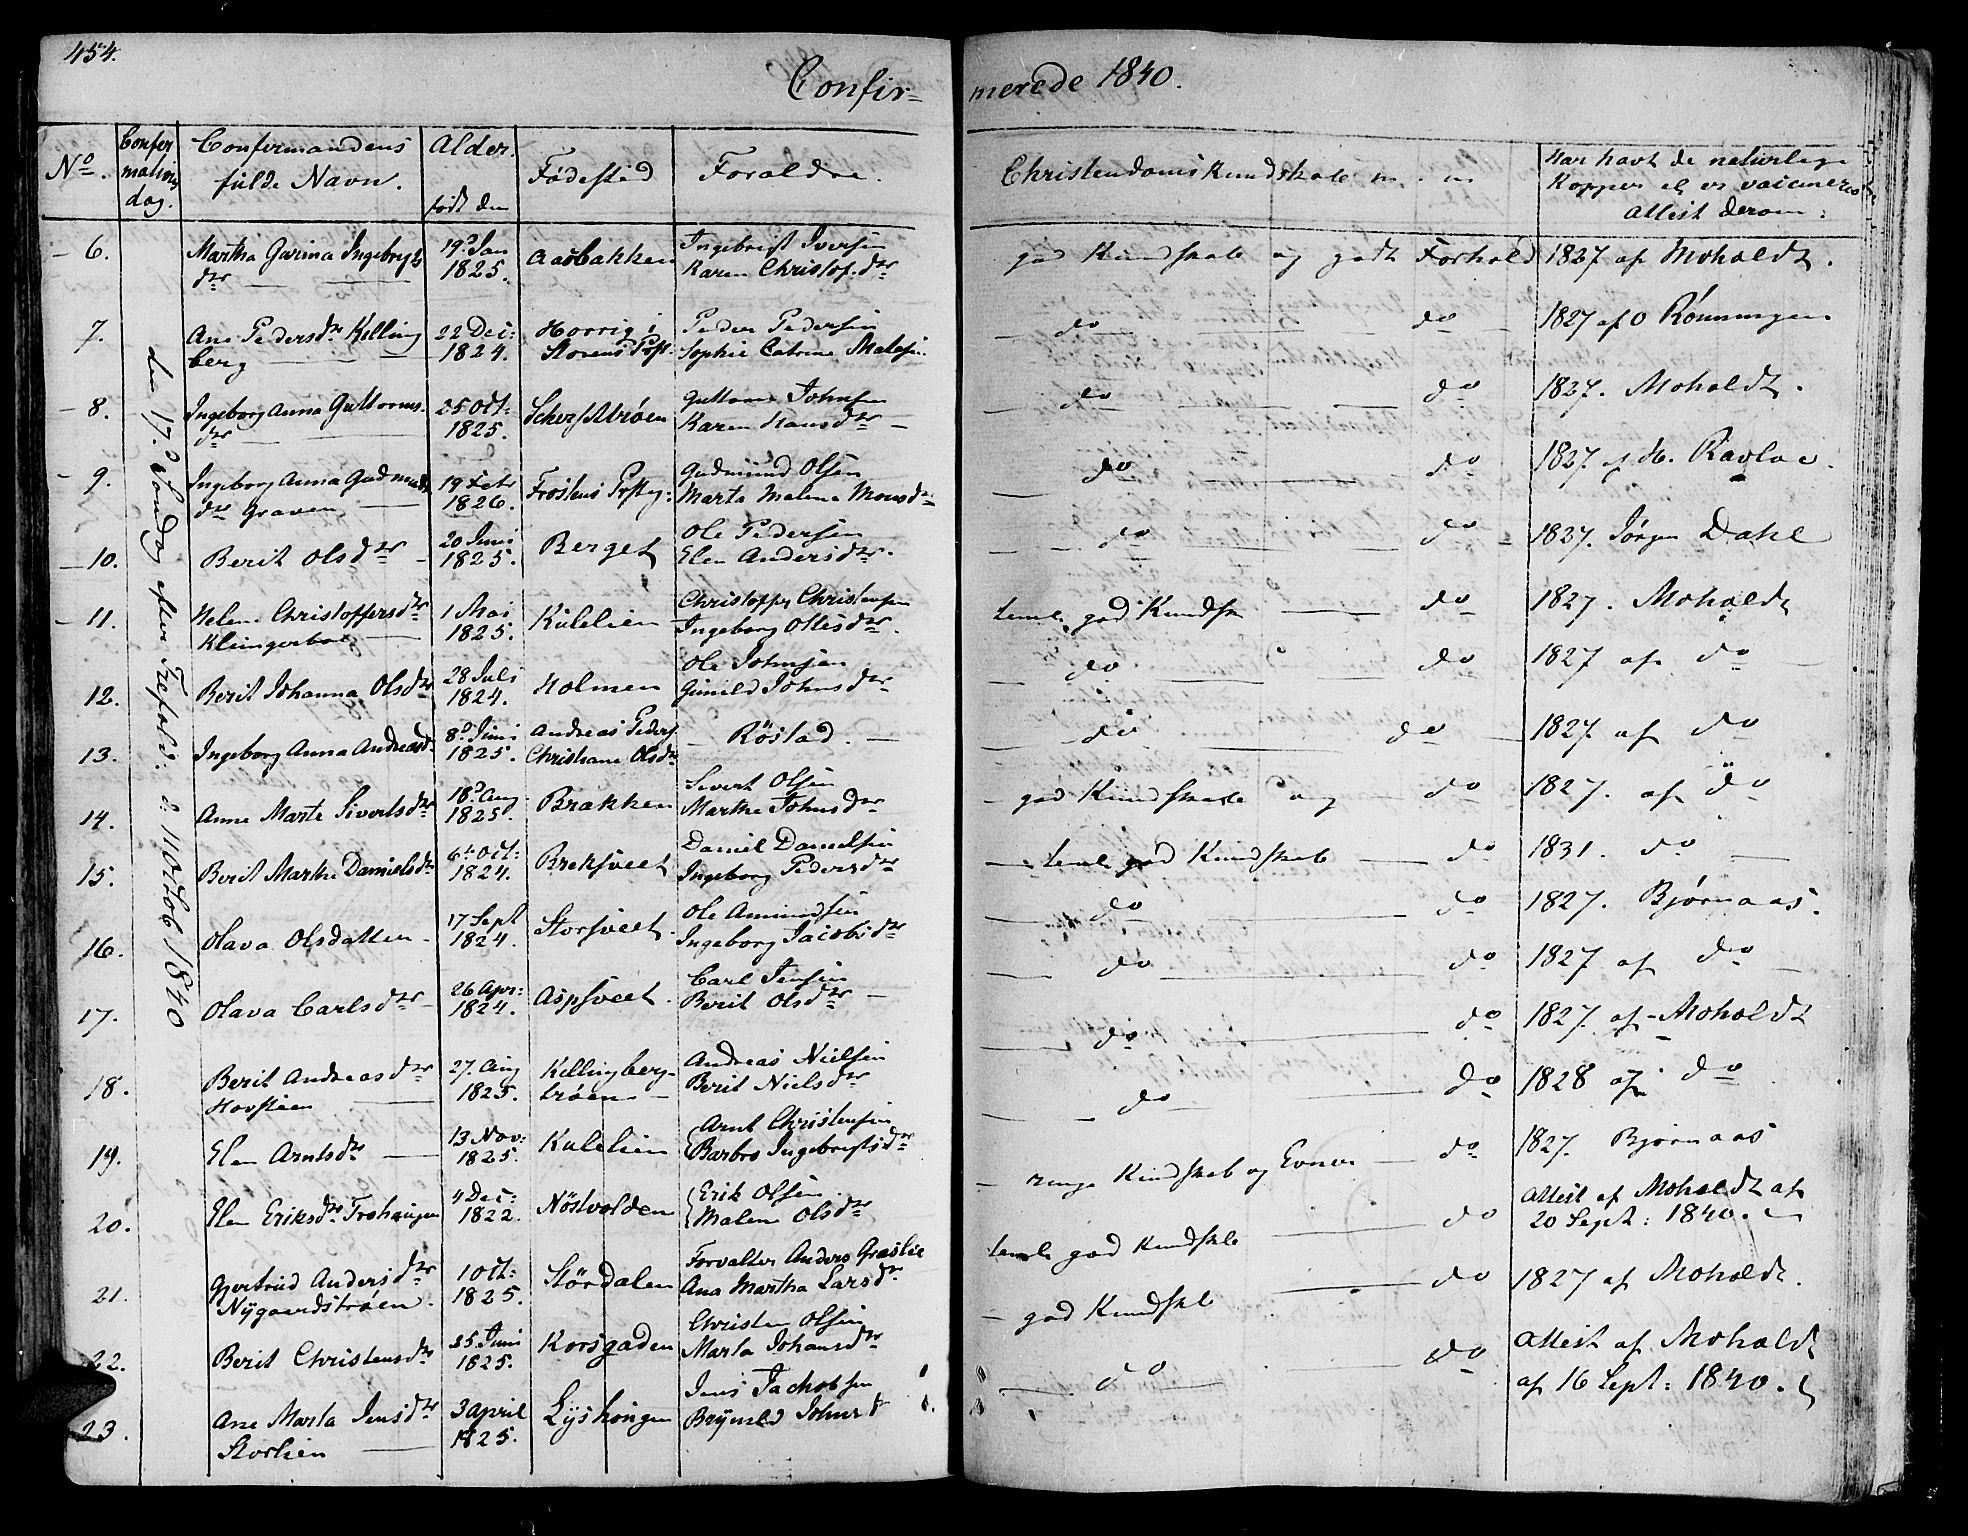 454.
Confir=
merede 1840.
No.
Confer
mations
dag.
Confermandens
fulde Navn.
Alder.
født den
Fødested
Foraldre.
Christendoms Kundskab m. m
Har havt de naturlige
Kopper el er vaccineret
Attest derom.
den 17d Sondag efter Trefold: d: 11 Octob 1840
6.
Martha Gurina Ingebrigts
dtr
19d Jan
1825.
Aasbakken
Ingebrigt Iversen
Karen Christof.dtr
god Kundskab og godt Forhold
1827 af Moholdt.
7.
Ane Pedersdtr Killing
berg
22 Dec:
1824.
Horrig i
Storens Pgst
Peder Pedersen
Sophie Catrine
do do
1827 af O Rönningen
8.
Ingeborg Anna Guttorms
dtr
25 Oct:
1825.
Guttorm Johnsen
Karen Hansdtr
do do
1827. Moholdt.
9.
Ingeborg Anna Gudmunds
dtr Graven
19 Febr
1826.
Gudmund Olsen
Marta Malena Monsdtr
do do
1827 af H.
10.
Berit Olsdtr
20 Juni
1825.
Berget
Ole Pedersen
Elen Andersdtr.
do do
1827. Jørgen Dahl
11.
Helene Christoffersdtr
1 Mai
1825.
Kulelien
Christoffer Christensen
Ingeborg Ollesdtr.
teml. god Kundsk do
1827. Moholdt
12.
Berit Johanna Olsdtr
28 Juli
1824.
Holmen
Ole Johnsen
Gunild Johnsdtr
do do
1827 af do
13.
Ingeborg Anna Andreasd.
8d Juni
1825.
Andreas Peders
Christiane Olsdtr
Röstad.
do do
1827. af do
14.
Anne Marte Sivertsdtr
18d Aug
1825
Brakken
Sivert Olsen
Marthe Johnsdtr
god Kundskab og do
1827. af do
15.
Berit Marthe Danielsdtr
6t Oct:
1824.
Breksveet
Daniel Danielsen
Ingeborg Pedersdtr
teml. god Kundskab do
1831. do
16.
Olava Olsdatter
17 Sept
1824.
Storsveet.
Ole Amundsen
Ingeborg Jacobsdtr
do do
1827. Bjørnaas.
17.
Olava Carlsdtr
26 Apr:
1824.
Aspsveet.
Carl Jensen
Berit Olsdtr
do do
1827 af do
18.
Berit Andreasdtr
Hovsteen
27. Aug
1825.
Killingberg-
trøen
Andreas Nielsen
Berit Nielsdtr
do do
1827. af Moholdt
do do
1828 af do
19.
Elen Arntsdtr
13 Nov:
1825.
Kulelien
Arnt Christensen
Barbro Ingebrigtsdtr
ringe Kundskab og Evner do
1827. Bjørnaas
20.
Elen Eriksdtr Trohaugen
4 Dec:
1822.
Nöstvolden
Erik Olsen
Malen Olsdtr
teml. god Kundskb do
Attest af Moholdt af
20 Sept: 1840.
21.
Gjertrud Andersdtr
Nygaardstrøen.
1 Oct:
1825.
Stördalen
Forvalter Anders Græslie
Ana Martha Larsdtr
god Kundskb do
1827 af Moholdt.
22.
Berit Christensdtr
25 Juni
1825.
Korsgaden
Christen Olsen
Marta Johansdtr
do do
Attest af Moholdt
af 16 Sept: 1840.
23.
Ane Marta Jensdtr
Storlien
3 April
1825.
Lyshaugen
Jens Jachobsen
Brynild Johnsd